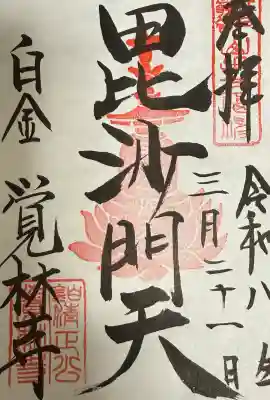 奉拝
令和八年
三月二十一日
毘沙門天
白金 覚林寺